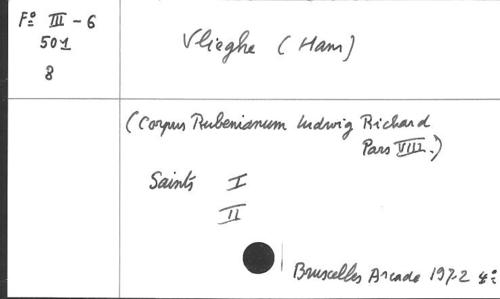 Fº III - 6
501
8
Vlieghe (Hans)
(Corpus Rubenianum Ludwig Richard
Pars VIII.)
Saints I
II
Bruxelles Arcade 1972 4º